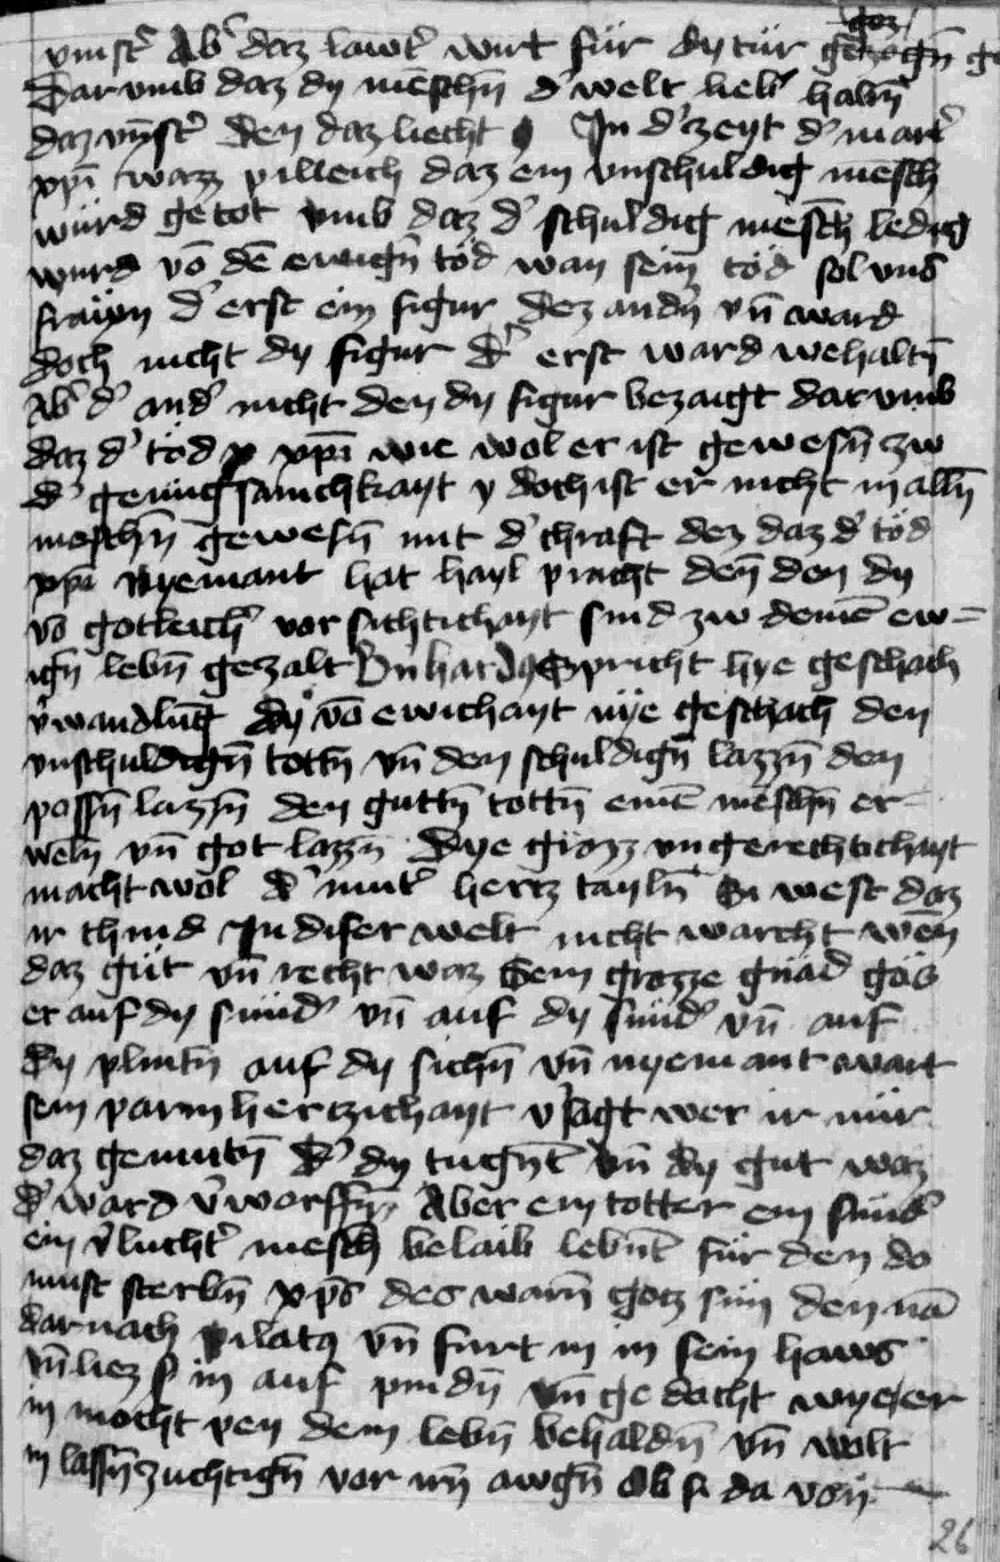 vinstˀ Abˀ daz lawtˀ wirt für dy tür gezogn̄
Dar vmb daz dy mēschn̄ dˀ welt liebˀ habn̄
daz vinstˀ den daz liecht In dˀ zeyt dˀ martˀ
xp̄i waz pilleich daz ein vnschuldig mēsch
würd getöt vmb daz dˀ schuldig mesch̄ ledig
wurd vō dē ewign̄ töd wan sein töd sol vns
frayn dˀ erst ein figur dez andn̄ vn̄ ward
doch nicht dy figur dˀ erst ward wehaltn̄
Abˀ dˀ andˀ nicht den dy figur bezaigt dar vmb
daz dˀ töd xp̄i wie wol er ist gewesn̄ zw
dˀ genügsamchkayt doch ist er nicht in alln̄
meschn̄ gewesn̄ mit dˀ chraft dez daz dˀ töd
xp̄i nyemant hat hayl pracht den̄ den dy
vō gotleichˀ vor sichtichayt sind zw demē ew=
ign̄ lebn̄ gezalt Bn̄hardꝰ Spricht hye geschach
v̄wandlūg dy vō ewichayt nye geschach den
vnschuldign̄ tottn̄ vn̄ den schuldign̄ lazzn̄ den
possn̄ lazzn̄ den guttn̄ tottn̄ einē mēschn̄ er
weln̄ vn̄ got lazzn̄ Dye grozz vngerechtichayt
macht wol dˀ mutˀ hertz tayln̄ Si west daz
ir chind In diser welt nicht warcht wēn
daz güt vn̄ recht waz Sein grozze gnad gös
er auf dy sündˀ vn̄ auf dy sündˀ vn̄ auf
dy plintn̄ auf dy sichn̄ vn̄ nyemant wart
sein parmhertzichayt vˀsagt wer ir nür
daz gemutn̄ dˀ dy tugn̄t vn̄ dy gut waz
dˀ ward v̄worffn̄ Aber ein totter ein sündˀ
ein v̄luchtˀ mesch̄ belaib lebn̄t für den do
must sterbn̄ xp̄s des warn̄ gotz sün den nā
darnach pilatꝰ vn̄ furt in in sein haws
vn̄ liez in auf pindn̄ vn̄ gedacht wye er
in mocht pey dem lebn̄ behaldn̄ vn̄ wolt
in lassn̄ zuchtign̄ vor irn̄ awgn̄ Ob si da von
26